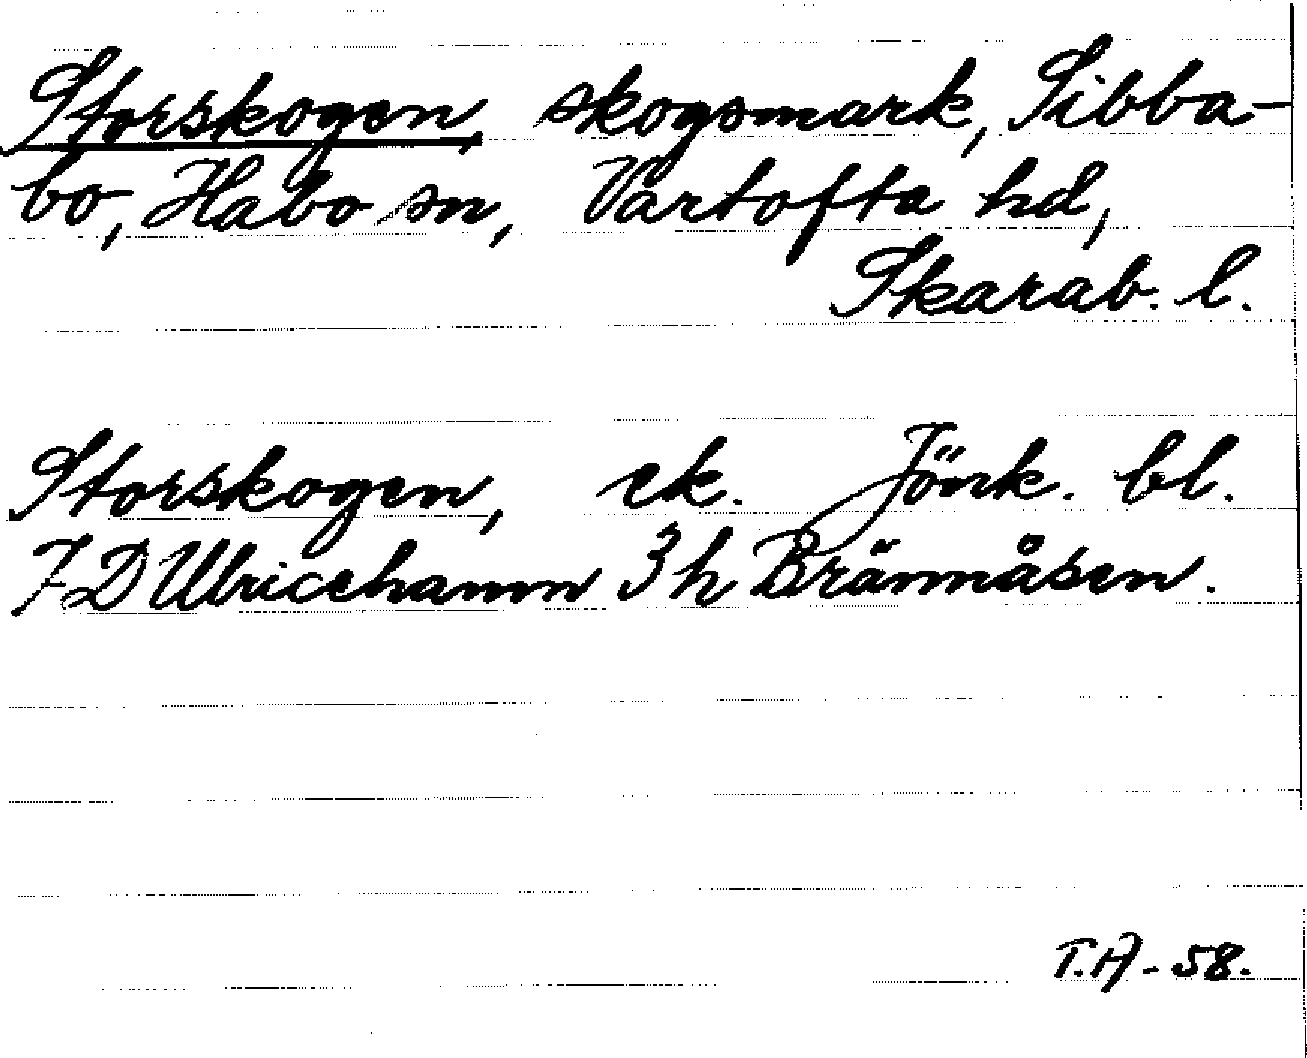 Storskogen, skogsmark, Sibba-
bo, Habo sn, Vartofta hd,
Skarab. l.
Storskogen, ek. Jönk. bl.
7 D Ulricehamn 3 h Brännåsen.
T.A - 58.